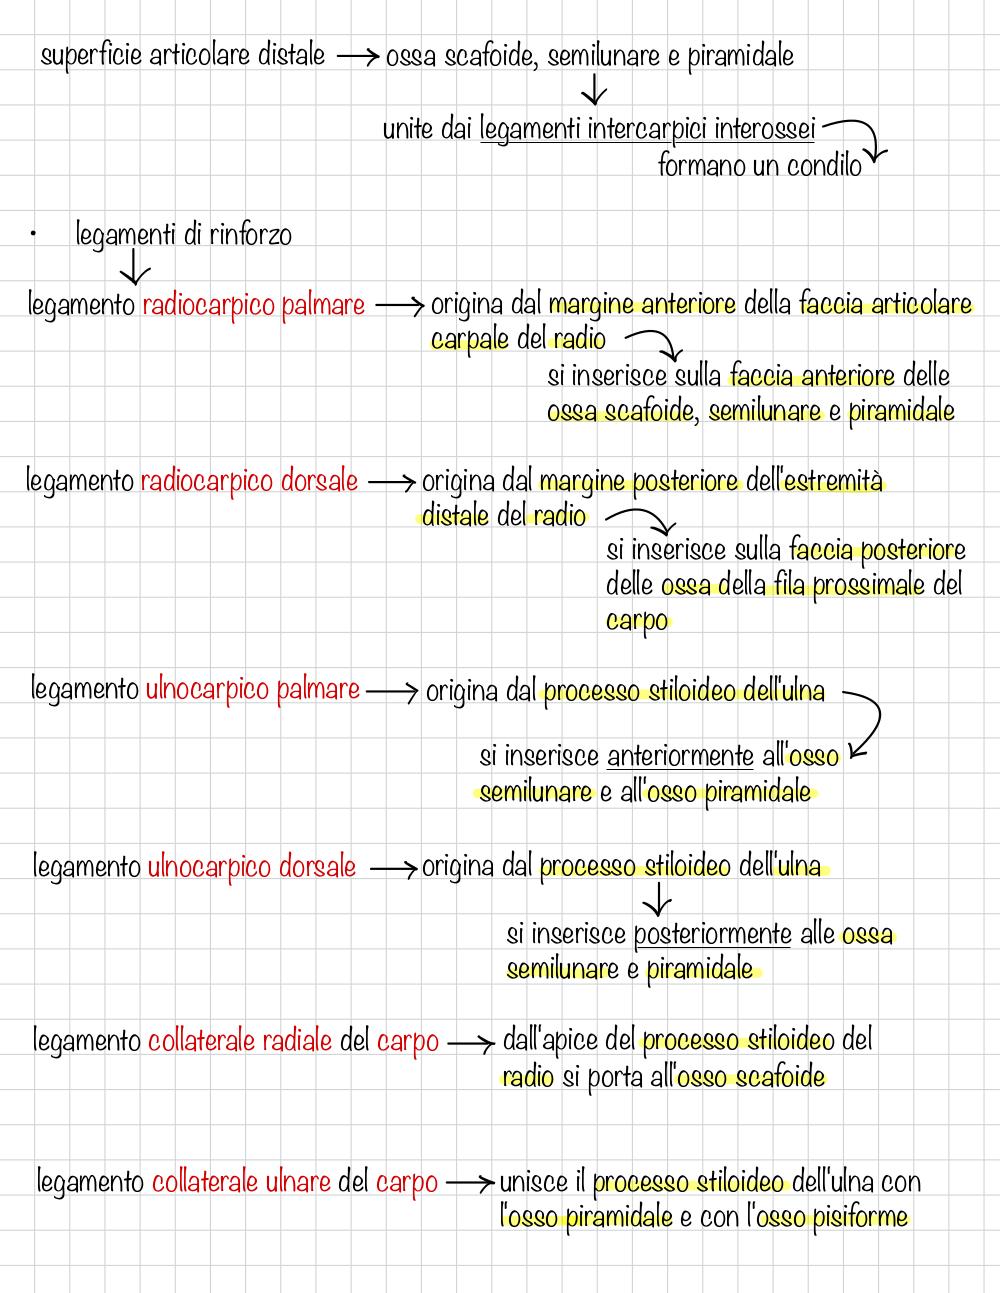 superficie articolare distale → ossa scafoide, semilunare e piramidale
unite dai legamenti intercarpici interossei
formano un condilo
• legamenti di rinforzo
legamento radiocarpico palmare → origina dal margine anteriore della faccia articolare
carpale del radio
si inserisce sulla faccia anteriore delle
ossa scafoide, semilunare e piramidale
legamento radiocarpico dorsale → origina dal margine posteriore dell'estremità
distale del radio
si inserisce sulla faccia posteriore
delle ossa della fila prossimale del
carpo
legamento ulnocarpico palmare → origina dal processo stiloideo dell'ulna
si inserisce anteriormente all'osso
semilunare e all'osso piramidale
legamento ulnocarpico dorsale → origina dal processo stiloideo dell'ulna
si inserisce posteriormente alle ossa
semilunare e piramidale
legamento collaterale radiale del carpo → dall'apice del processo stiloideo del
radio si porta all'osso scafoide
legamento collaterale ulnare del carpo → unisce il processo stiloideo dell'ulna con
l'osso piramidale e con l'osso pisiforme